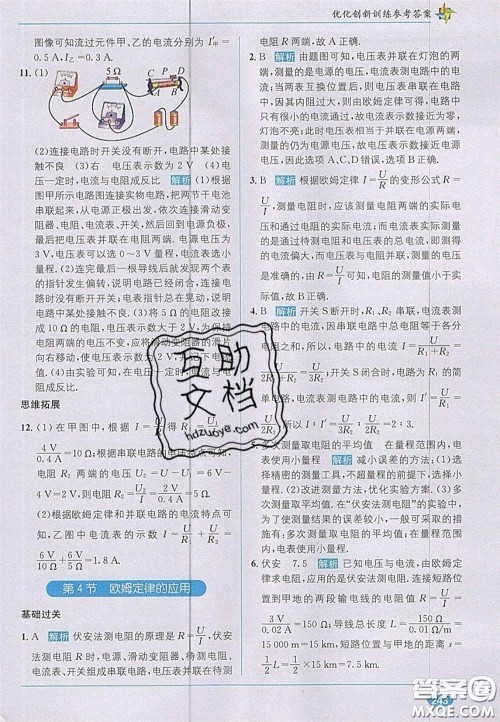 优化创新训练参考答案
图像可知流过元件甲、乙的电流分别为 I′甲=
0.5 A,I′乙=0.3 A。
11. (1)
5 Ω
(2)连接电路时开关没有断开,电路中某处接
触不良 (3)右 电压表示数为 2 V (4)电
压一定时,电流与电阻成反比 解析 (1)根据
图甲所示电路图连接实物电路,把两节干电池
串联起来,从电源正极出发,依次连接滑动变
阻器、电阻、电流表、开关,然后回到电源负极,
最后把电压表并联在电阻两端。电源电压为
3 V,电压表可以选 0～3 V 量程,电路图如图
所示。(2)连完最后一根导线后就发现两个表
的指针发生偏转,说明电路已经闭合,连接电
路时没有断开开关;电表指针总是晃动,说明
电路中某处接触不良。(3)将 5 Ω 的定值电阻
改接成 10 Ω 的电阻,电压表示数增大,为控制
电阻两端电压的不变,应将滑动变阻器的滑片
向右移动,使电压表示数为 2 V。
结果可知,电压一定时,电流与电阻成反比。
思维拓展
12. (1)在甲图中,根据 I=U/R 得,
4 V/0.4 A=10 Ω,
电阻 R₂ 两端的电压 U₂=U−U₁=6 V−
4 V=2 V,则电阻 R₂=U₂/I=2 V/0.4 A=5 Ω。
(2)根据欧姆定律和并联电路的电流特点可
知,乙图中电流表的示数为 I=U/R₁+U/R₂=
6 V/10 Ω+6 V/5 Ω=1.8 A。
第 4 节 欧姆定律的应用
基础过关
1. A 解析 伏安法测电阻的原理是 R=U/I,伏
安法测电阻时,电源、滑动变阻器、待测电阻、
电流表、开关组成串联电路,电压表并联在待测
电阻 R 两端,故 A 正确。
2. B 解析 由题图可知,电压表并联在灯泡的两
端,测量的是电源的电压,电流表测电路中的电
流;当两表互换位置后,则电压表串联在电路
中,电流表并联在电源两端,由于电压表串联在
电路中,因其内阻过大,根据欧姆定律可得,电路中
只有很小的电流,故电流表示数接近为零,
灯泡不亮;此时电压表并联在电源两端,故
测量的仍为电源电压,故电压表示数几乎不
变,因此选项 A、C、D 错误,选项 B 正确。
3. B 解析 根据欧姆定律 I=U/R 的变形公式 R=
U/I,测量电阻时,应该为测量电阻两端的实际电
压和通过电阻的实际电流;而电流表实际测量
的是通过待测电阻和电压表的电流之和,所得
的电流偏大,而电压表与电阻并联,电压的测量
是准确的,由 R=U/I 可知,电阻的测量值小于实
际值。
4. B 解析 开关 S 断开时,R₁、R₂ 串联,电流表测
电路中的电流,因串联电路中总电阻等于各分
电阻之和,所以,此时电流表的示数 I₁=
U/(R₁+R₂)=U/(2R₂+R₂)=U/3R₂;开关 S 闭合时,电路
为 R₂ 的简单电路,电流表测电路中的电流,则
电流表的示数 I₂=U/R₂,所以 I₁∶I₂=U/3R₂∶U/R₂=1∶3。
多次测量取电阻的平均值 在量程范围内,电
表使用小量程 解析 减小误差的方法:(1)选
择精密的测量工具,不超量程的前提下,选择小
量程。(2)改进测量方法,优化实验方案。(3)多
次测量取平均值。在"伏安法测电阻"的实验中,
为了使测量结果误差较小,一般可以采用的方
法是多次测量取电阻的平均值、在量程范围内,
电表使用小量程。
6. 伏安 7.5 解析 已知电压与电流,由欧姆定
律求电阻,应用的是伏安法。由题意可知,甲、乙
两地之间的两段输电线的电阻值 R=U/I=
3 V/0.02 A=150 Ω,导线长度 L=150 Ω/(0.01 Ω/m)=
15 000 m=15 km,短路位置与甲地的距离 s=
½L=½×15 km=7.5 km。
243
互助
文档
hdzuoye.com
答案圈
MXQE.COM